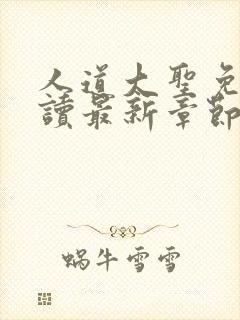 人道大聖免
讀最新章節
蝸牛雪雪